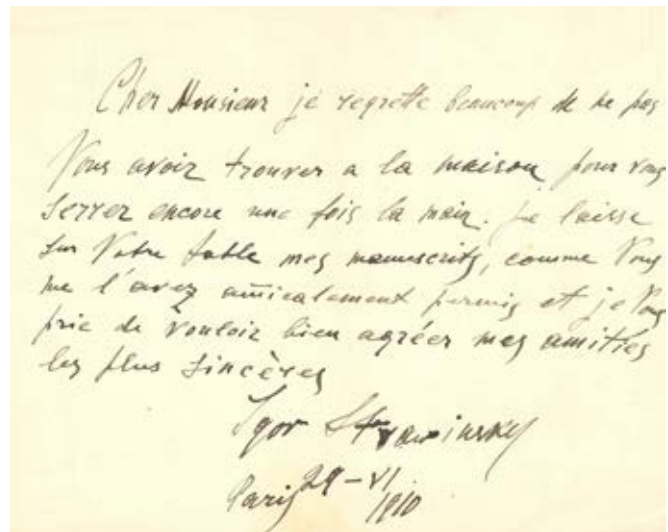 Cher Monsieur je regrette beaucoup de ne pas
Vous avoir trouver a la maison pour vous
serrer encore une fois la main. Je laisse
sur Votre table mes manuscrits, comme Vous
me l'avez amicalement permis et je Vous
prie de vouloir bien agréer mes amitiés
les plus sincères
Igor Strawinsky
Paris 29-VI
1910